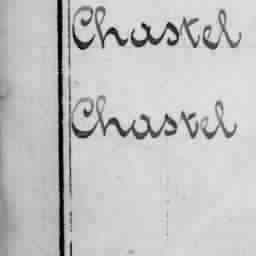 Chastel
Chastel